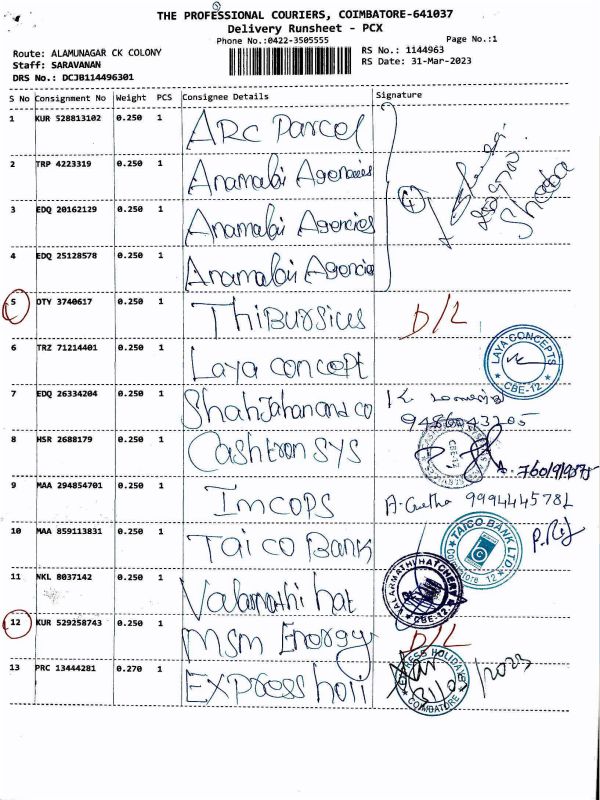 THE PROFESSIONAL COURIERS, COIMBATORE-641037
Delivery Runsheet - PCX
Phone No.:0422-3505555
Page No.:1
Route: ALAMUNAGAR CK COLONY
RS No.: 1144963
Staff: SARAVANAN
RS Date: 31-Mar-2023
DRS No.: DCJB114496301
S No Consignment No Weight PCS Consignee Details Signature
1 KUR 528813102 0.250 1 ARC Parcel
2 TRP 4223319 0.250 1 Anamalai Agencies
3 EDQ 20162129 0.250 1 Anamalai Agencies
4 EDQ 25128578 0.250 1 Anamalai Agencie
4
Shoba
5 OTY 3740617 0.250 1 Thibursius D/L
6 TRZ 71214401 0.250 1 Laya concept
LAYA CONCEPTS CBE-12
7 EDQ 26334204 0.250 1 ShahJahan and co K.
9486043205
8 HSR 2688179 0.250 1 Cashtron SYS
CBE-12
9 MAA 294854701 0.250 1 Imcops
10 MAA 859113831 0.250 1 Taico Bank
TAICO BANK LTD. Coimbatore 12
11 NKL 8037142 0.250 1 Valarmathi hat
VALARMATHI HATCHERY CBE-12
12 KUR 529258743 0.250 1 MSM Energy D/L
13 PRC 13444281 0.270 1 Express holi
EXPRESS HOLIDAYS COIMBATORE
31/03/2023